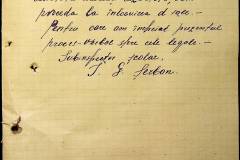 proceda la întocmirea d sale.-
Pentru care am încheiat prezentul
proces-verbal spre cele legale.-
Subinspector școlar,
I. G. Șerban